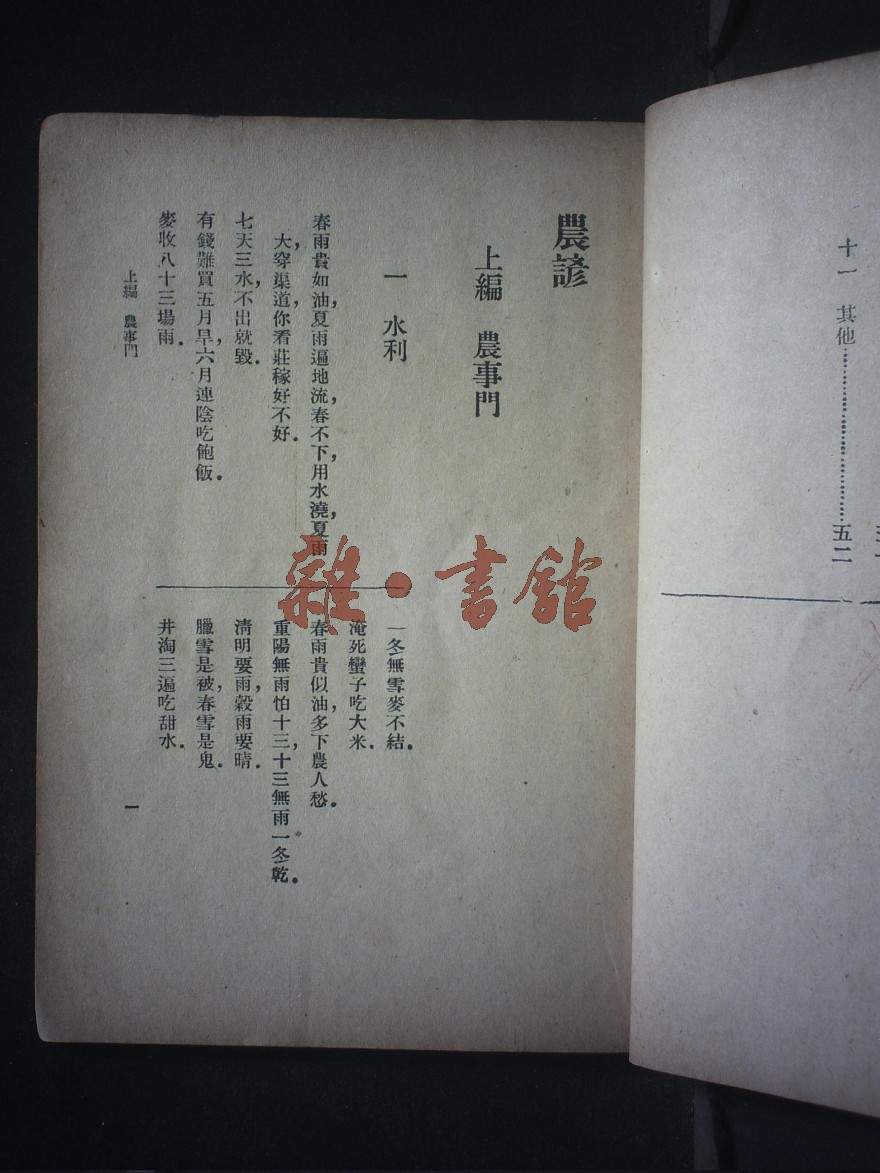 十一 其他……………………五二
農諺
上編 農事門
一 水利
春雨貴如油，夏雨遍地流，春不下，用水澆，夏雨
大，穿渠道，你看莊稼好不好．
七天三水，不出就毀．
有錢難買五月旱，六月連陰吃飽飯．
麥收八十三場雨．
一冬無雪麥不結．
淹死蠻子吃大米．
春雨貴似油，多下農人愁．
重陽無雨怕十三，十三無雨一冬乾．
淸明要雨，穀雨要晴．
臘雪是被，春雪是鬼．
井淘三遍吃甜水．
上編 農事門
一
雜·書館